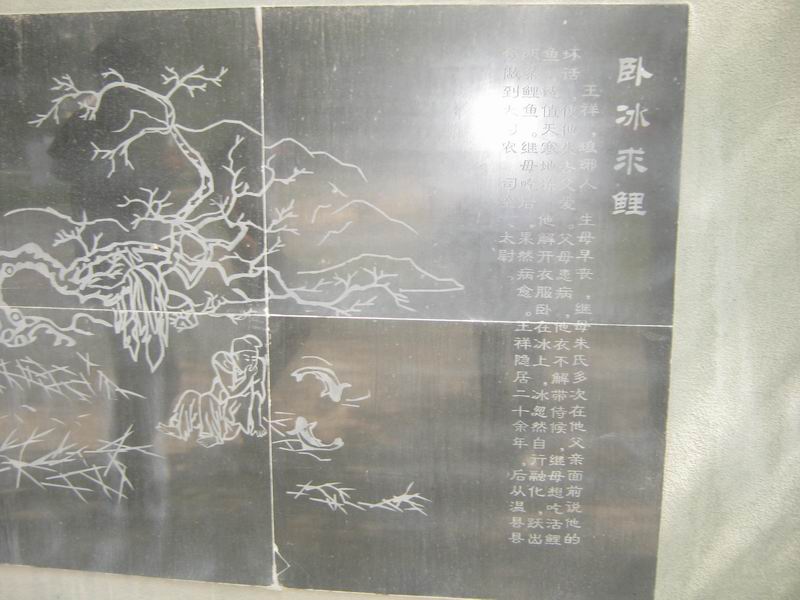 卧冰求鲤
王祥，琅琊人，生母早丧，继母朱氏多次在他父亲面前说他的
坏话，使他失去父爱。父母患病，他衣不解带侍候，继母想吃活鲤
鱼，适值天寒地冻，他解开衣服卧在冰上，冰忽然自行融化，跃出
鲤鱼。继母吃后，果然病愈。王祥隐居二十余年，后从温县县
做到大司农、司、太尉。